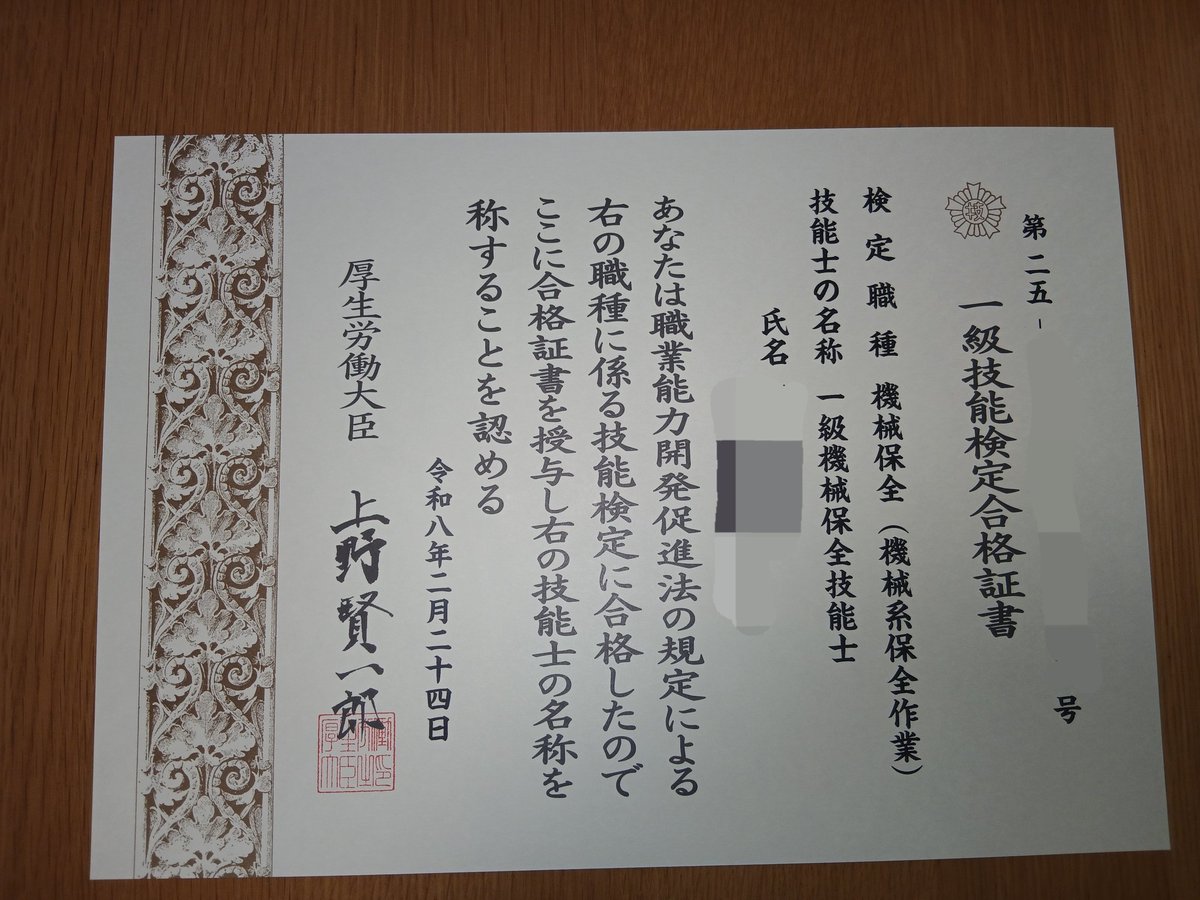 第二五-
号
一級技能検定合格証書
検定職種 機械保全(機械系保全作業)
技能士の名称 一級機械保全技能士
氏名
あなたは職業能力開発促進法の規定による
右の職種に係る技能検定に合格したので
ここに合格証書を授与し右の技能士の名称を
称することを認める
令和八年二月二十四日
厚生労働大臣 上野賢一郎